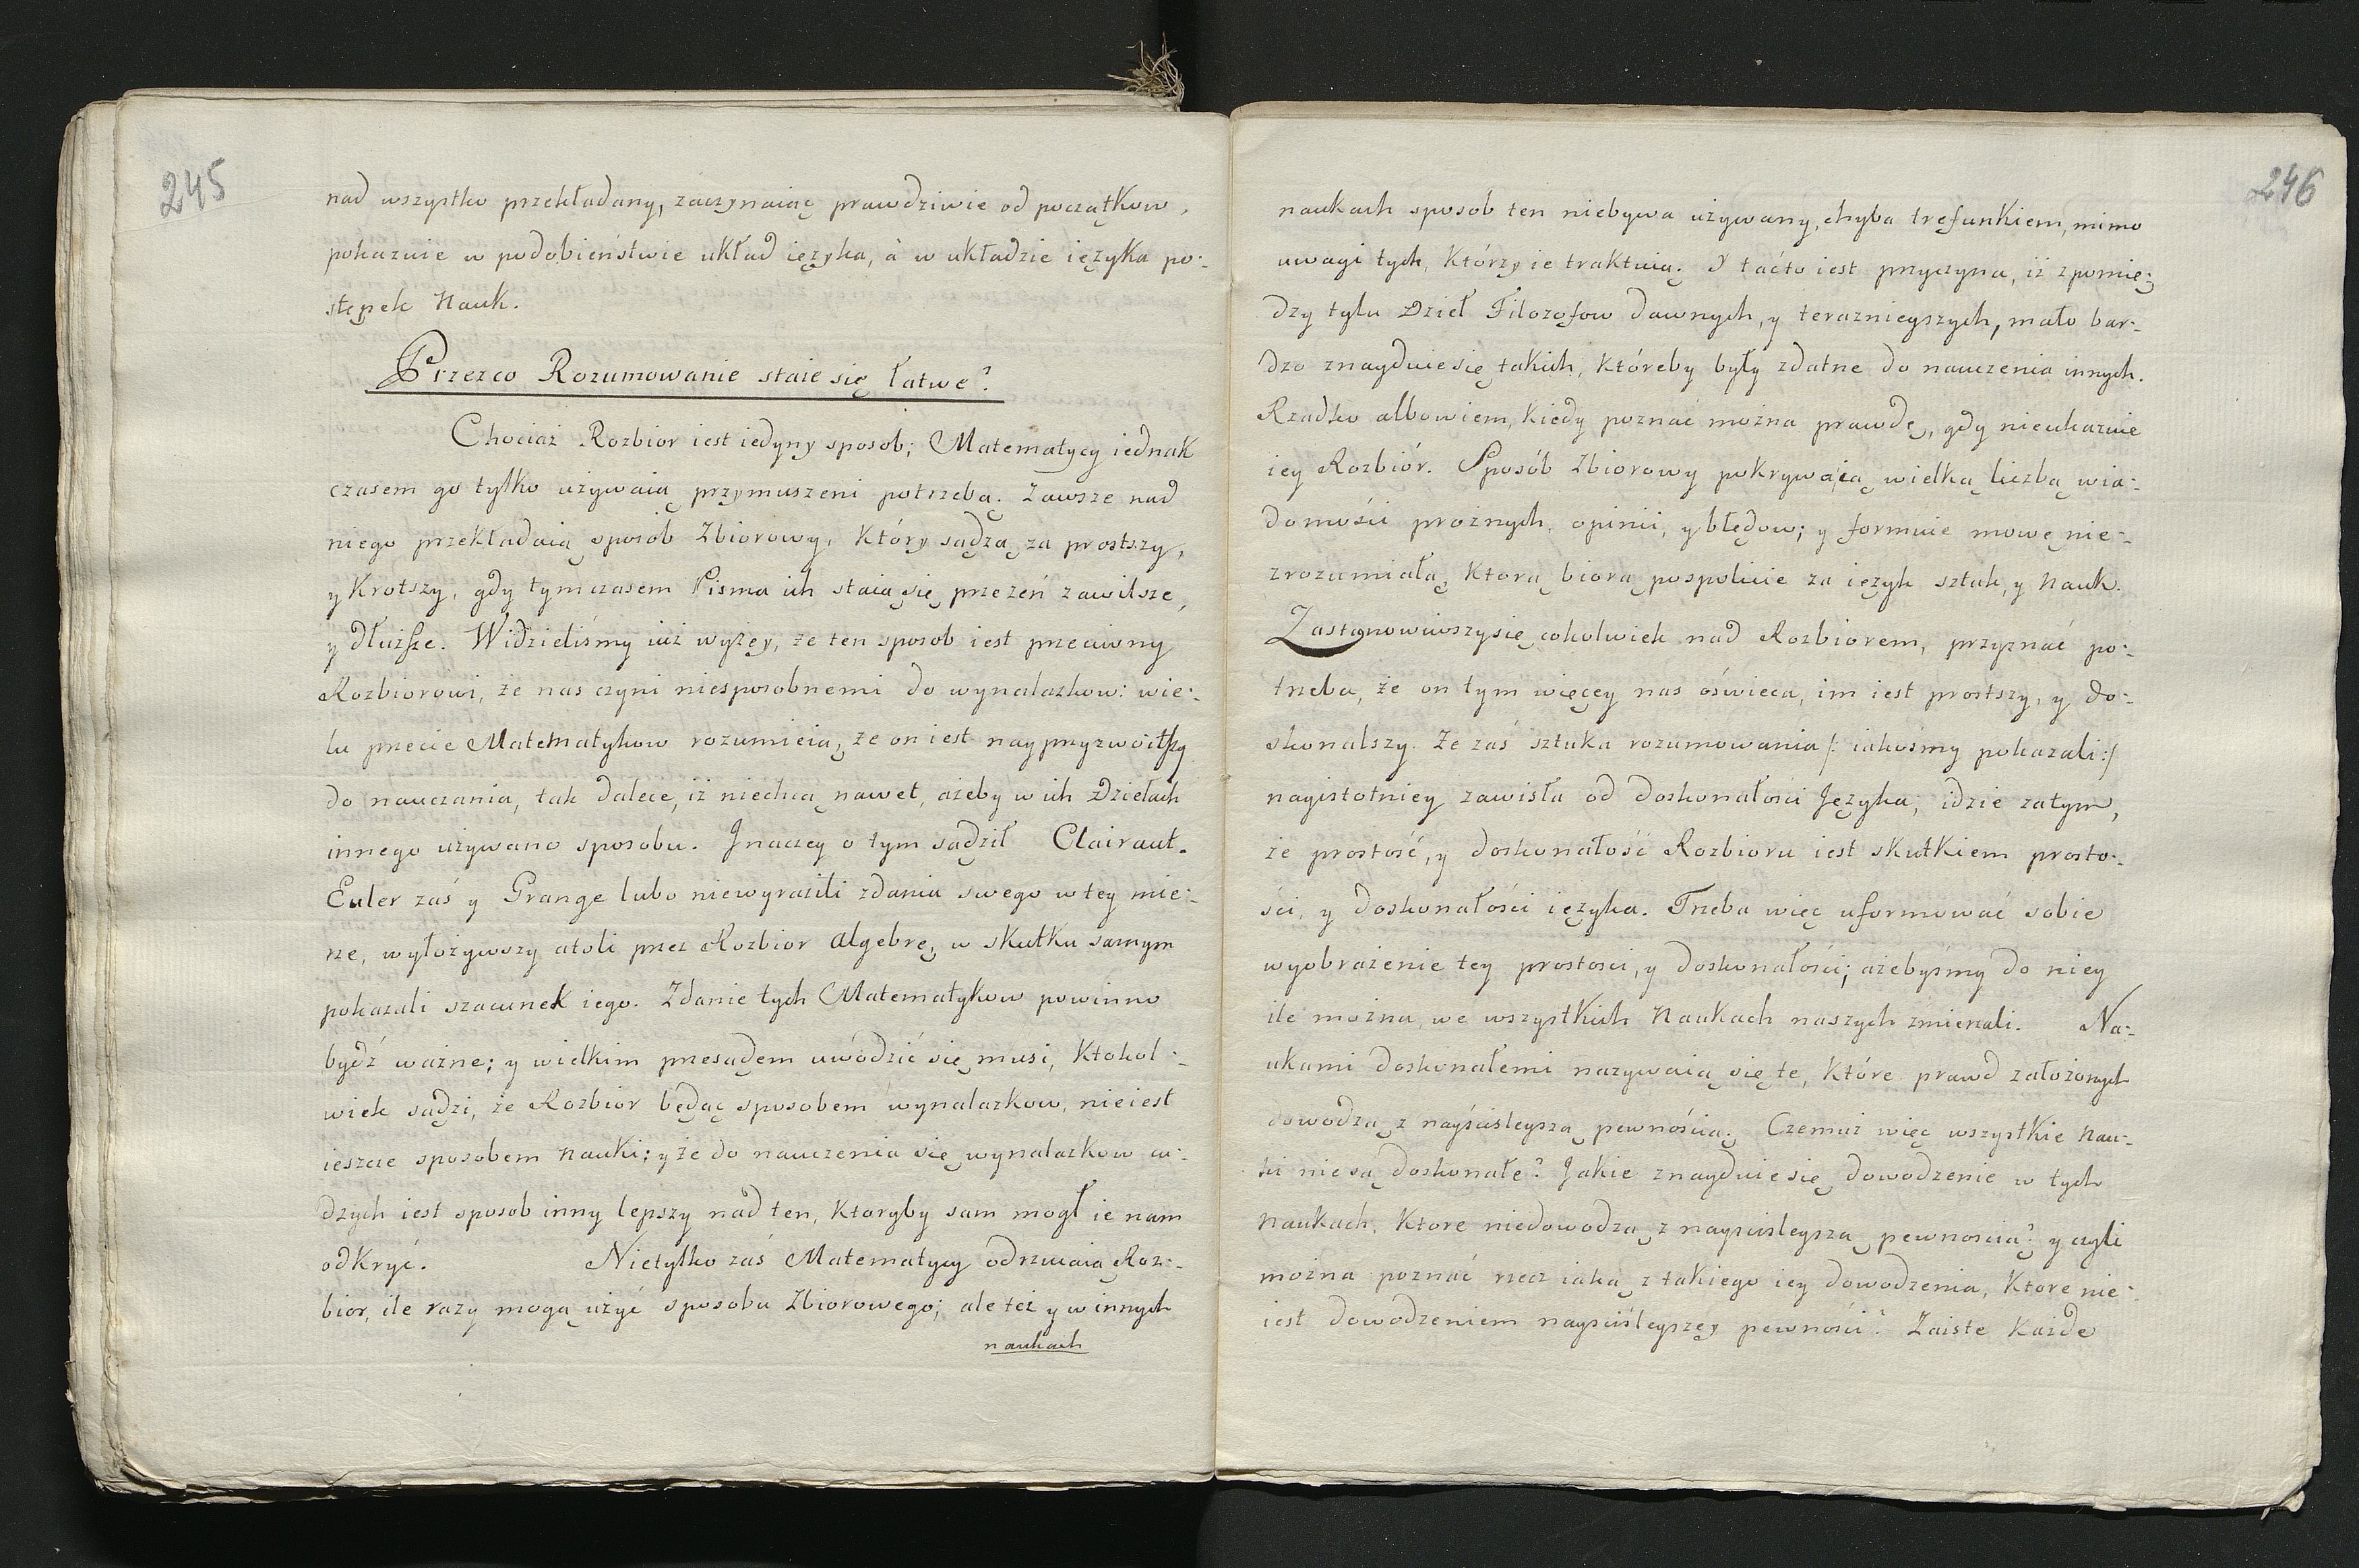 245
nad wszystko przekładany, zaczynaiąc prawdziwie od początkow,
pokazuie w podobieństwie układ ięzyka, à w układzie ięzyka po-:
stępek Nauk.
Przezco Rozumowanie staie się łatwe?
Chociaż Rozbior iest iedyny sposob; Matematycy iednak
czasem go tylko używaią przymuszeni potrzebą. Zawsze nad
niego przekładaią sposob Zbiorowy, który sądzą za prostszy,
y krotszy, gdy tymczasem Pisma ich staią się przezeń zawilsze,
y dłuższe. Widzieliśmy iuż wyżey, że ten sposob iest przeciwny
Rozbiorowi, że nas czyni niesposobnemi do wynalazkow: wie-:
lu przecie Matematykow rozumieią, że on iest nayprzyzwoitszy
do nauczania, tak dalece, iż niechcą nawet, ażeby w ich Dziełach
innego używano sposobu. Jnaczey o tym sądził Clairaut.
Euler zaś y Grange lubo niewyrazili zdania swego w tey mie-:
rze, wyłożywszy atoli przez Rozbior Algebrę, w skutku samym
pokazali szacunek iego. Zdanie tych Matematykow powinno
bydź ważne; y wielkim przesądem uwodzić się musi, ktokol-:
wiek sądzi, że Rozbior będąc sposobem wynalazkow, nieiest
ieszcze sposobem Nauki; y że do nauczenia się wynalazkow cu-:
dzych iest sposob inny lepszy nad ten, ktoryby sam mogł ie nam
odkryć. Nietylko zaś Matematycy odrzucaią Roz-:
bior, ile razy mogą użyć sposobu Zbiorowego; ale też y w innych
naukach
246
naukach sposob ten niebywa używany, chyba trefunkiem, mimo
uwagi tych, którzy ie traktuią. Y taćto iest przyczyna, iż zpomię-:
dzy tylu Dzieł Filozofow dawnych, y teraznieyszych, mało bar-:
dzo znayduie się takich, któreby były zdatne do nauczenia innych.
Rzadko albowiem, kiedy poznać można prawdę, gdy nieukazuie
iey Rozbiór. Sposób Zbiorowy pokrywa ią wielką liczbą wia-:
domości prożnych, opinii, y błędow; y formuie mowę nie-:
zrozumiałą, ktorą biorą pospolicie za ięzyk sztuk, y Nauk.
Zastanowiwszy się cokolwiek nad Rozbiorem, przyznać po-:
trzeba, że on tym więcey nas oświeca, im iest prostszy, y do-:
skonalszy. Że zaś sztuka rozumowania /: iakośmy pokazali :/
nayistotniey zawisła od doskonałości Języka; idzie zatym,
że prostość, y doskonałość Rozbioru iest skutkiem prosto-:
ści, y doskonałości ięzyka. Trzeba więc uformować sobie
wyobrażenie tey prostości, y doskonałości; ażebyśmy do niey
ile można, we wszystkich Naukach naszych zmierzali. Na-:
ukami doskonałemi nazywaią się te, które prawd założonych
dowodzą z nayściśleyszą pewnością. Czemuż więc wszystkie Nau-:
ki nie są doskonałe? Jakie znayduie się dowodzenie w tych
Naukach, ktore niedowodzą z nayściśleyszą pewnością? y czyli
można poznać rzecz iaką z takiego iey dowodzenia, ktore nie-:
iest dowodzeniem nayściśleyszey pewności? Zaiste każde